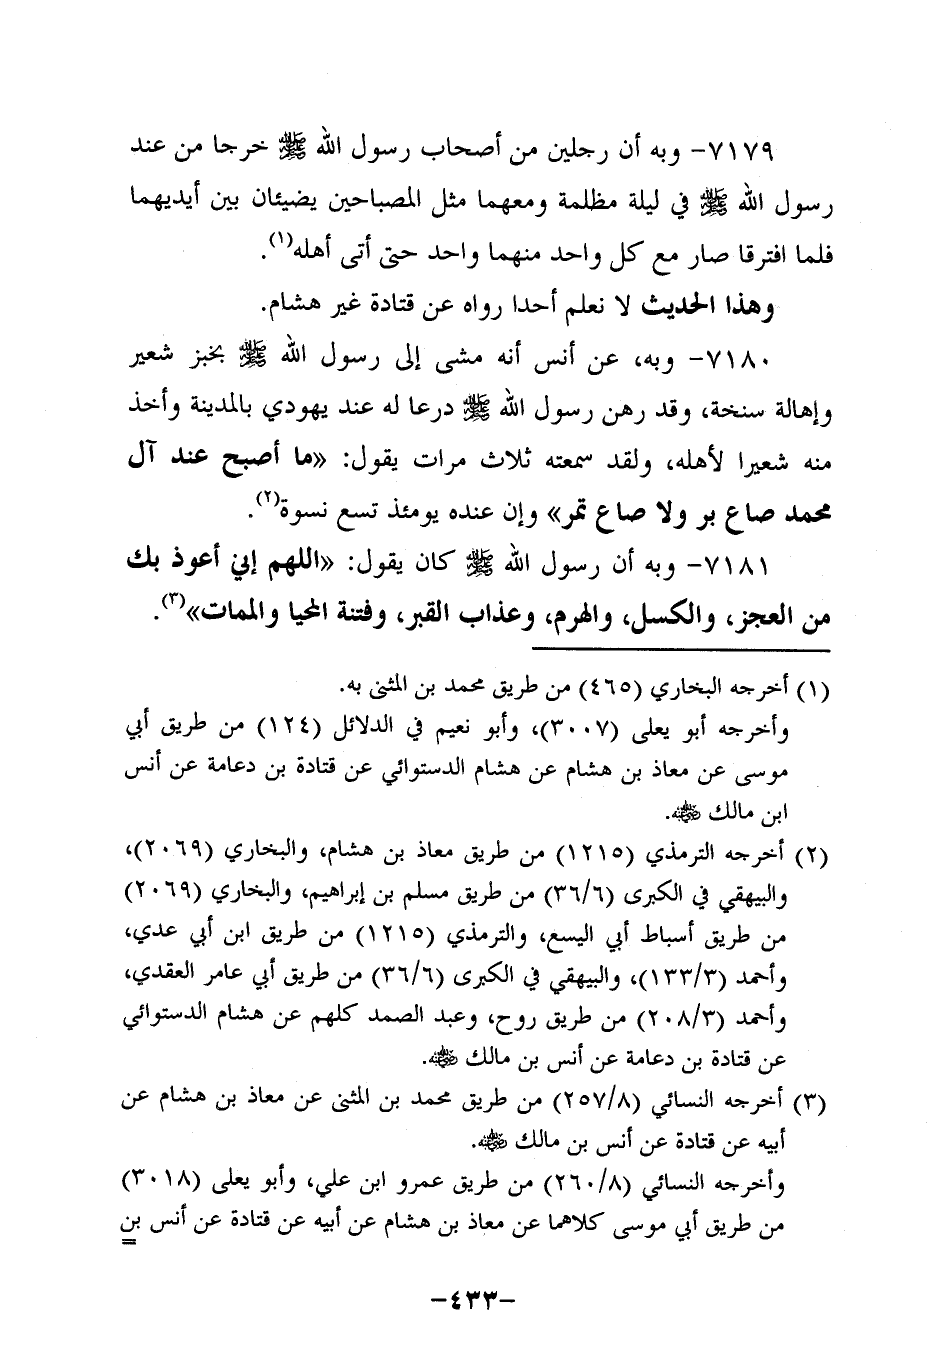 ٧١٧٩- وبه أن رجلين من أصحاب رسول الله ﷺ خرجا من عند
رسول الله ﷺ في ليلة مظلمة ومعهما مثل المصباحين يضيئان بين أيديهما
فلما افترقا صار مع كل واحد منهما واحد حتى أتى أهله(١).
وهذا الحديث لا نعلم أحدا رواه عن قتادة غير هشام.
٧١٨٠- وبه، عن أنس أنه مشى إلى رسول الله ﷺ بخبز شعير
وإهالة سنخة، وقد رهن رسول الله ﷺ درعا له عند يهودي بالمدينة وأخذ
منه شعيرا لأهله، ولقد سمعته ثلاث مرات يقول: «ما أصبح عند آل
محمد صاع بر ولا صاع تمر» وإن عنده يومئذ تسع نسوة(٢).
٧١٨١- وبه أن رسول الله ﷺ كان يقول: «اللهم إني أعوذ بك
من العجز، والكسل، والهرم، وعذاب القبر، وفتنة المحيا والممات»(٣).
(١) أخرجه البخاري (٤٦٥) من طريق محمد بن المثنى به.
وأخرجه أبو يعلى (٣٠٠٧)، وأبو نعيم في الدلائل (١٢٤) من طريق أبي
موسى عن معاذ بن هشام عن هشام الدستوائي عن قتادة بن دعامة عن أنس
ابن مالك رضي الله عنه.
(٢) أخرجه الترمذي (١٢١٥) من طريق معاذ بن هشام، والبخاري (٢٠٦٩)،
والبيهقي في الكبرى (٣٦/٦) من طريق مسلم بن إبراهيم، والبخاري (٢٠٦٩)
من طريق أسباط أبي اليسع، والترمذي (١٢١٥) من طريق ابن أبي عدي،
وأحمد (١٣٣/٣)، والبيهقي في الكبرى (٣٦/٦) من طريق أبي عامر العقدي،
وأحمد (٢٠٨/٣) من طريق روح، وعبد الصمد كلهم عن هشام الدستوائي
عن قتادة بن دعامة عن أنس بن مالك رضي الله عنه.
(٣) أخرجه النسائي (٢٥٧/٨) من طريق محمد بن المثنى عن معاذ بن هشام عن
أبيه عن قتادة عن أنس بن مالك رضي الله عنه.
وأخرجه النسائي (٢٦٠/٨) من طريق عمرو ابن علي، وأبو يعلى (٣٠١٨)
من طريق أبي موسى كلاهما عن معاذ بن هشام عن أبيه عن قتادة عن أنس بن
=
-٤٣٣-